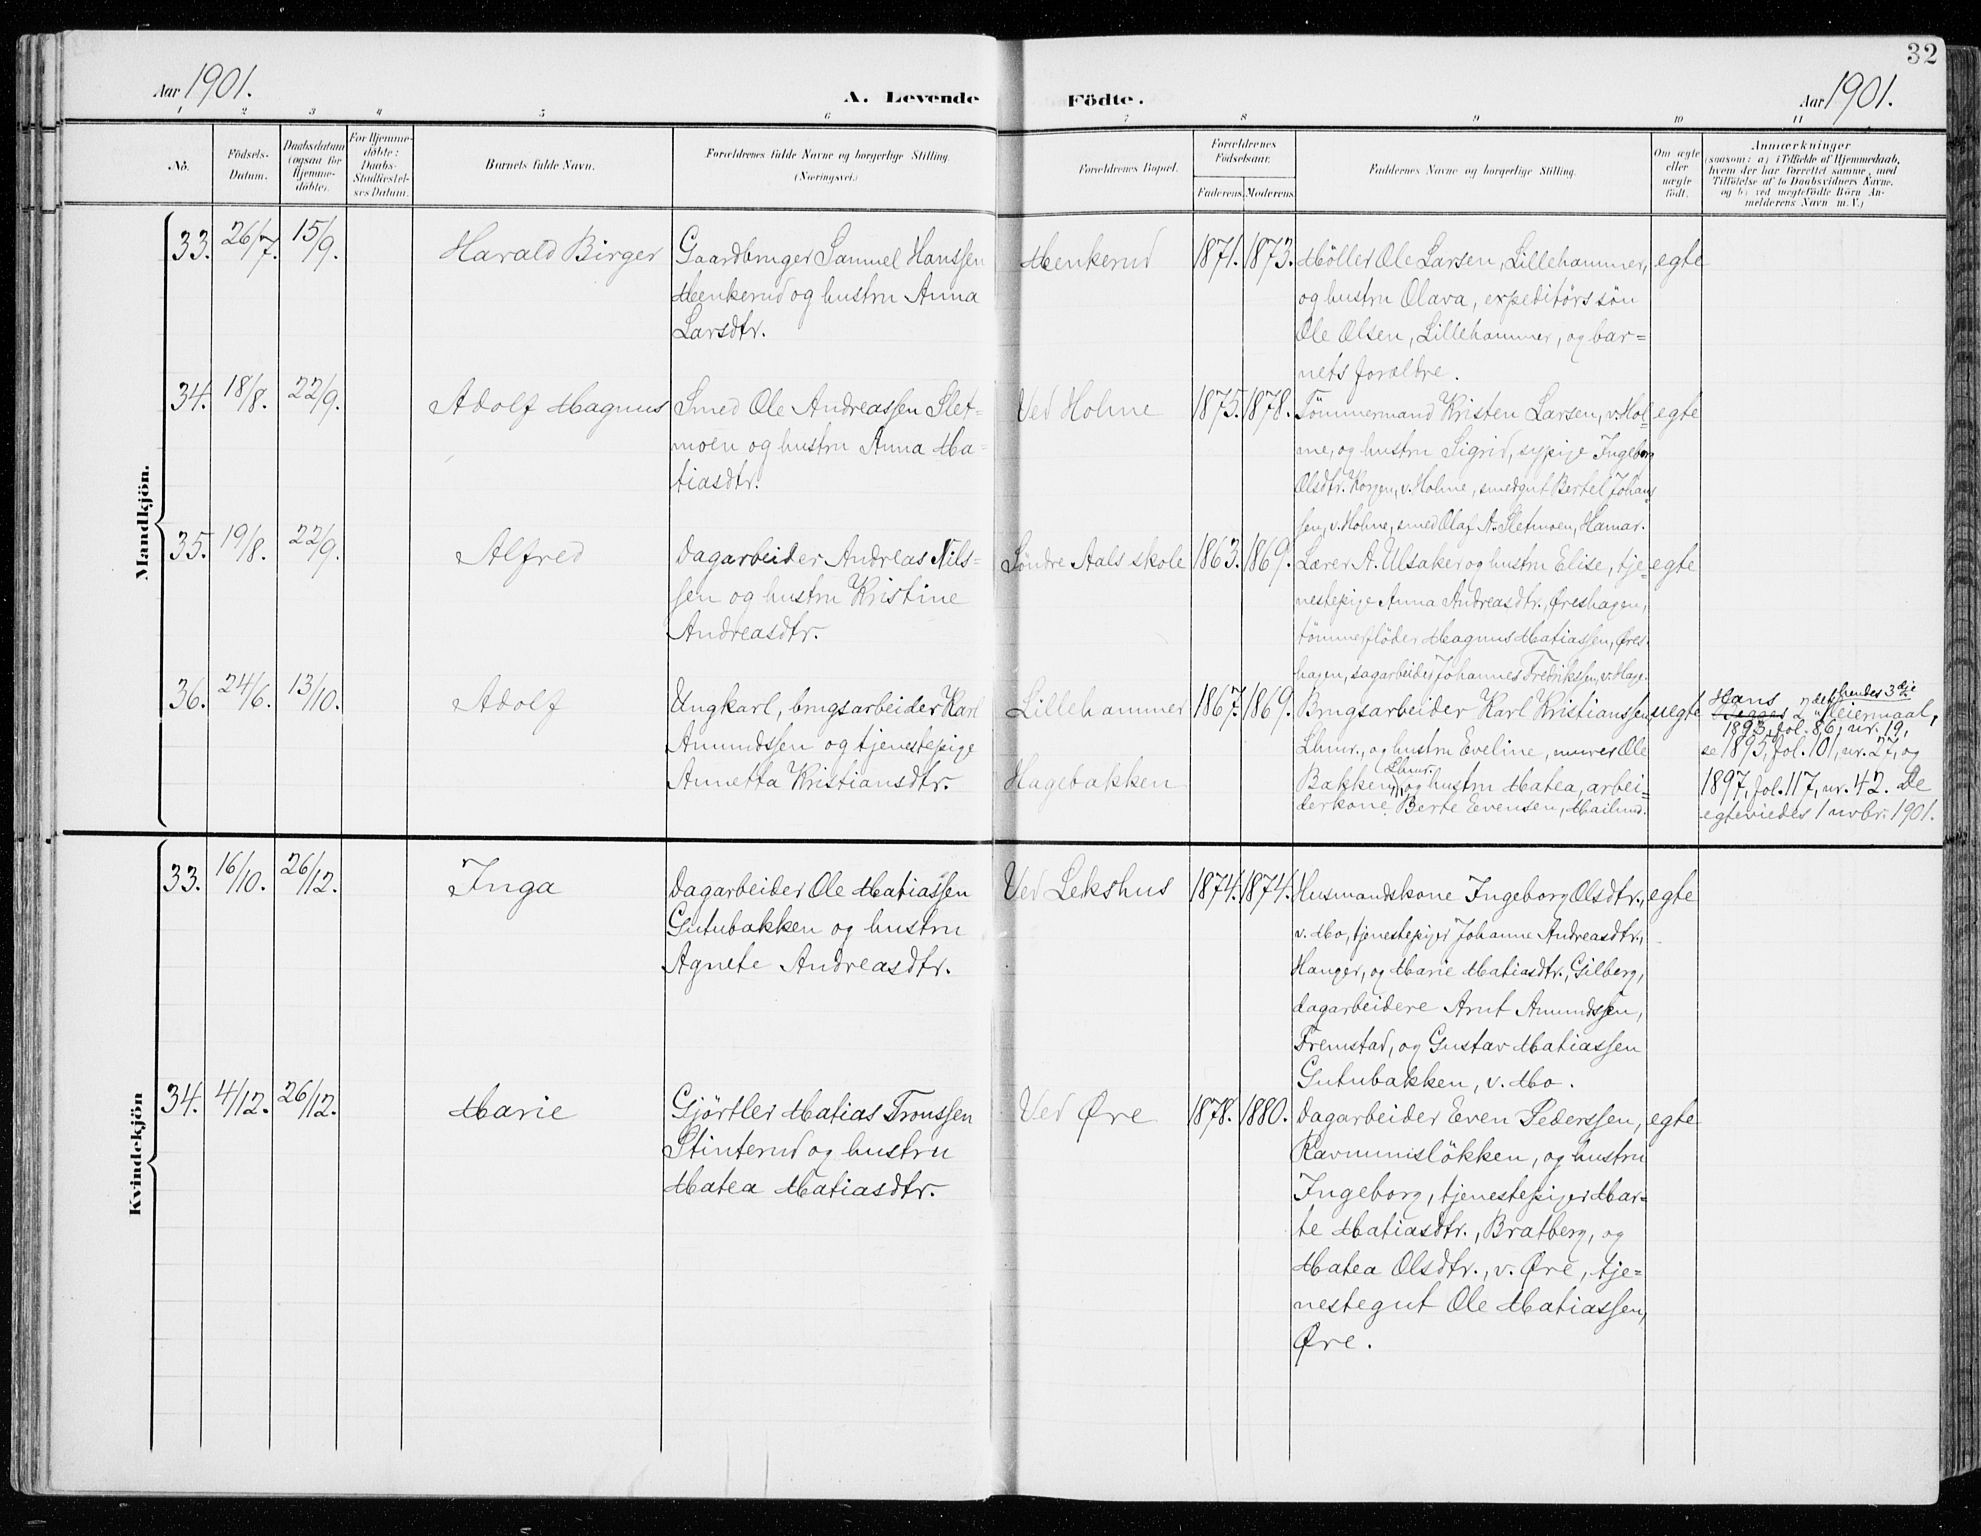 32
Aar 1901.
A. Levende Födte.
Aar 1901.
1 2 3 4 5 6 7 8 9 10 11
No.
Födsels-
Datum.
Daabsdatum
(ogsaa for
Hjemme-
döbte).
For Hjemme-
döbte:
Daabs-
Stadfæstel-
ses Datum.
Barnets fulde Navn.
Forældrenes fulde Navne og borgerlige Stilling.
(Næringsvei.)
Forældrenes Bopæl.
Forældrenes
Födselsaar.
Faderens. Moderens.
Faddernes Navne og borgerlige Stilling.
Om ægte
eller
uægte
födt.
Anmærkninger
(saasom: a) i Tilfælde af Hjemmedaab,
hvem der har forrettet samme, med
Tilföielse af to Daabsvidners Navne,
og b) ved uægtefödte Börn An-
melderens Navn m. V.)
Mandkjön.
33. 26/7. 15/9. Harald Birger
Gaardbruger Samuel Hanssen
Menkerud og hustru Anna
Larsdtr.
Menkerud
1871. 1873.
Möller Ole Larsen, Lillehammer,
og hustru Olava, expeditörs sön
Ole Olsen, Lillehammer, og bar=
nets forældre.
egte
34. 18/8. 22/9. Adolf Magnus
Smed Ole Andreassen Slet=
moen og hustru Anna Ma=
tiasdtr.
Ved Holme
1875. 1878.
Tömmermand Kristen Larsen, v. Hol=
me, og hustru Sigrid, sypige Ingeborg
Olsdtr. Korpen, v. Holme, smedgut Bertel Johans
sen, v. Holme, smed Olaf A. Sletmoen, Hamar.
egte
35. 19/8. 22/9. Alfred
Dagarbeider Andreas Nils=
sen og hustru Kristine
Andreasdtr.
Söndre Aals skole
1863. 1869.
Lærer A. Ulsaker og hustru Elise, tje=
nestepige Anna Andreasdtr., Øreshagen,
tömmerflöder Magnus Matiassen, Øres=
hagen, sagarbeider Johannes Fredrikssen, v. Hage.
egte
36. 24/6. 13/10. Adolf
Ungkarl, brugsarbeider Karl
Amundssen og tjenestepige
Annetta Kristiansdtr.
Lillehammer
Hagebakken
1867. 1869.
Brugsarbeider Karl Kristianssen
Lhmr., og hustru Eveline, murer Ole
Bakken, Lhmr. og hustru Matea, arbei=
derkone Berte Evensen, Mailund.
uegte
Hans 2det, hendes 3die
leiermaal,
1893, fol. 86, nr. 19,
se 1893, fol. 101, nr. 27, og
1897, fol. 117, nr. 42. De
egteviedes 1 novbr. 1901.
Kvindekjön
33. 16/10. 26/12. Inga
Dagarbeider Ole Matiassen
Gutubakken og hustru
Agnete Andreasdtr.
Ved Lekshus
1874. 1874.
Husmandskone Ingeborg Olsdtr.,
v. Mo, tjenestepiger Johanne Andreasdtr.,
Hanger, og Marie Matiasdtr., Gilberg,
dagarbeidere Arnt Amundssen,
Fremstad, og Gustav Matiassen
Gutubakken, v. Mo.
egte
34. 4/12. 26/12. Marie
Gjörtler Matias Tronssen
Stinterud og hustru
Matea Matiasdtr.
Ved Øre
1878. 1880.
Dagarbeider Even Pederssen,
Ravnumslökken, og hustru
Ingeborg, tjenestepiger Mar=
te Matiasdtr., Bratberg, og
Matea Olsdtr., v. Øre, tje=
nestegut Ole Matiassen,
Øre.
egte